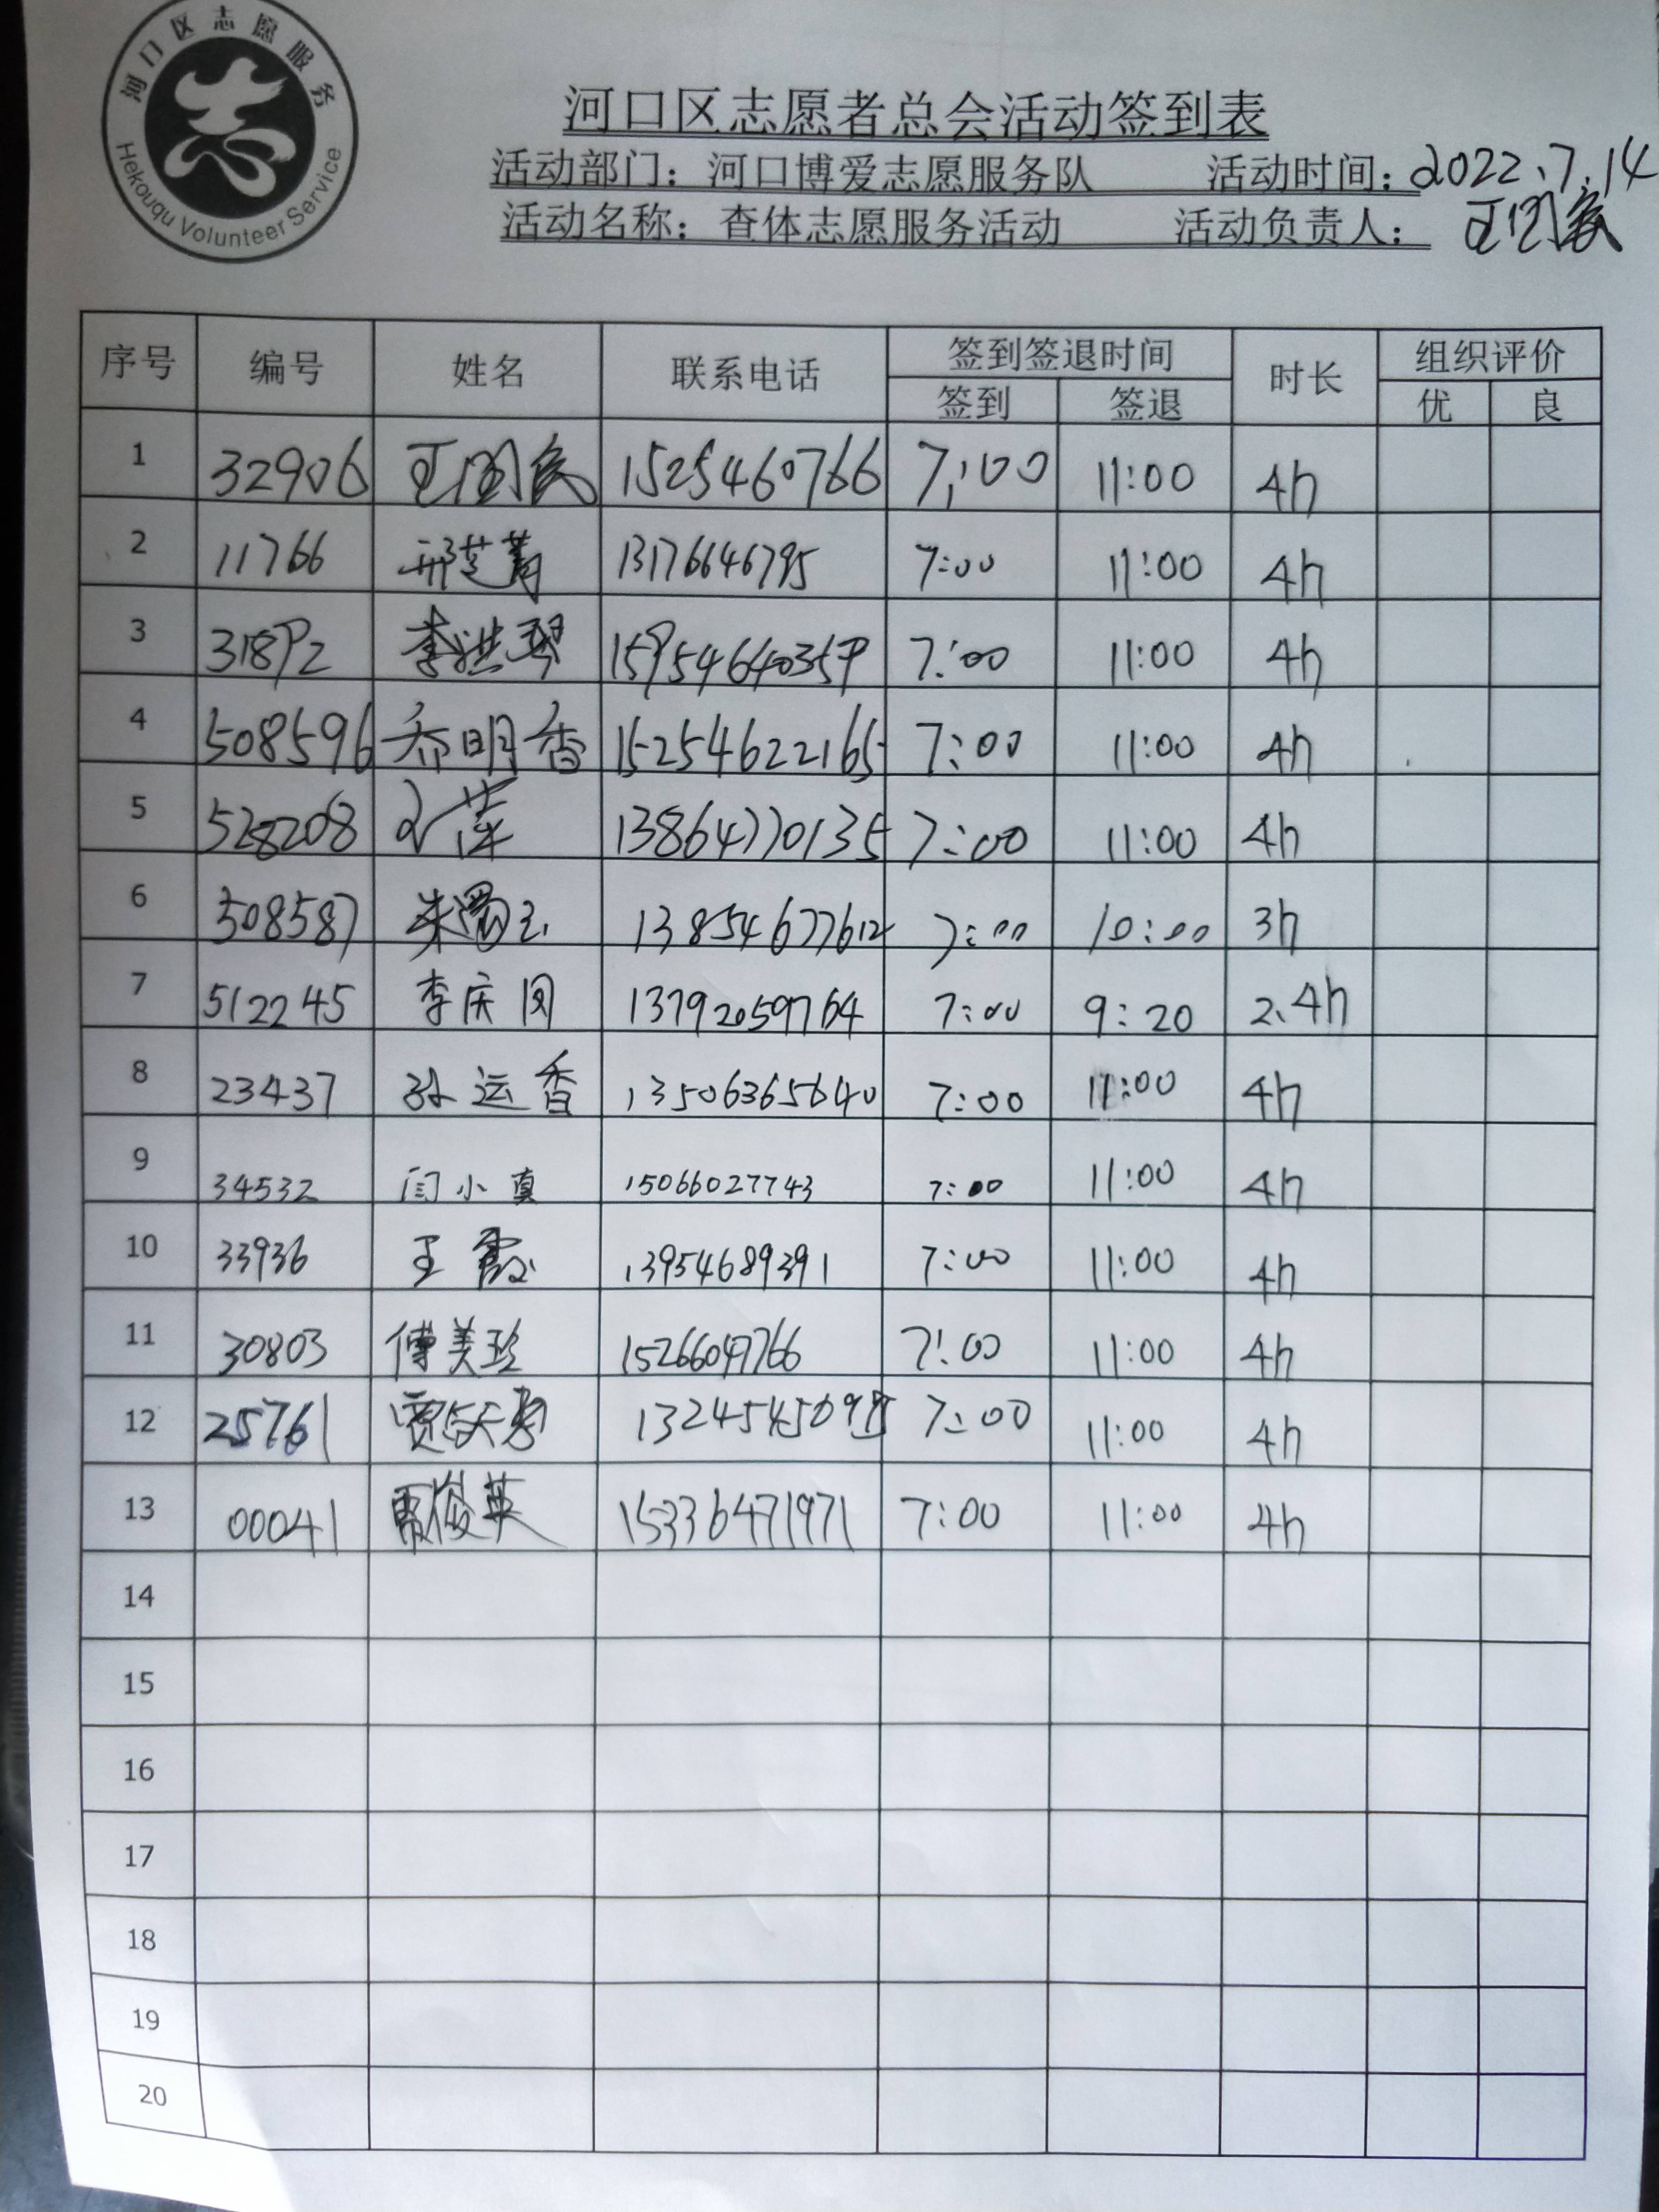 河口区志愿服务
Hekouqu Volunteer Service
河口区志愿者总会活动签到表
活动部门：河口博爱志愿服务队 活动时间：2022.7.14
活动名称：查体志愿服务活动 活动负责人：
序号 编号 姓名 联系电话 签到签退时间 时长 组织评价
签到 签退 优 良
1 32906 15254660766 7:00 11:00 4h
2 11766 邢芝菁 13176646795 7:00 11:00 4h
3 31892 李洪琴 15954640359 7:00 11:00 4h
4 508596 乔明香 15254622165 7:00 11:00 4h
5 528208 13864770135 7:00 11:00 4h
6 508587 13854677612 7:00 10:00 3h
7 512245 李庆 13792059764 7:00 9:20 2.4h
8 23437 孙运香 13506365640 7:00 11:00 4h
9 34532 闫小真 15066027743 7:00 11:00 4h
10 33936 王霞 13954689391 7:00 11:00 4h
11 30803 傅美玲 15266047766 7:00 11:00 4h
12 25761 7:00 11:00 4h
13 00041 15336471971 7:00 11:00 4h
14
15
16
17
18
19
20